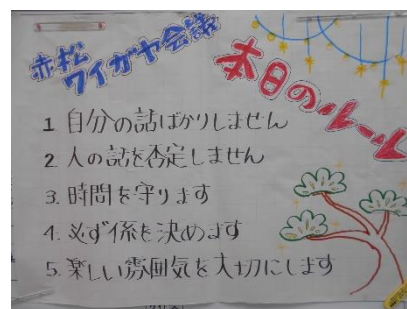 赤松
ワイガヤ会議
本日のルール
1 自分の話ばかりしません
2. 人の話を否定しません
3. 時間を守ります
4. 必ず係を決めます
5. 楽しい雰囲気を大切にします